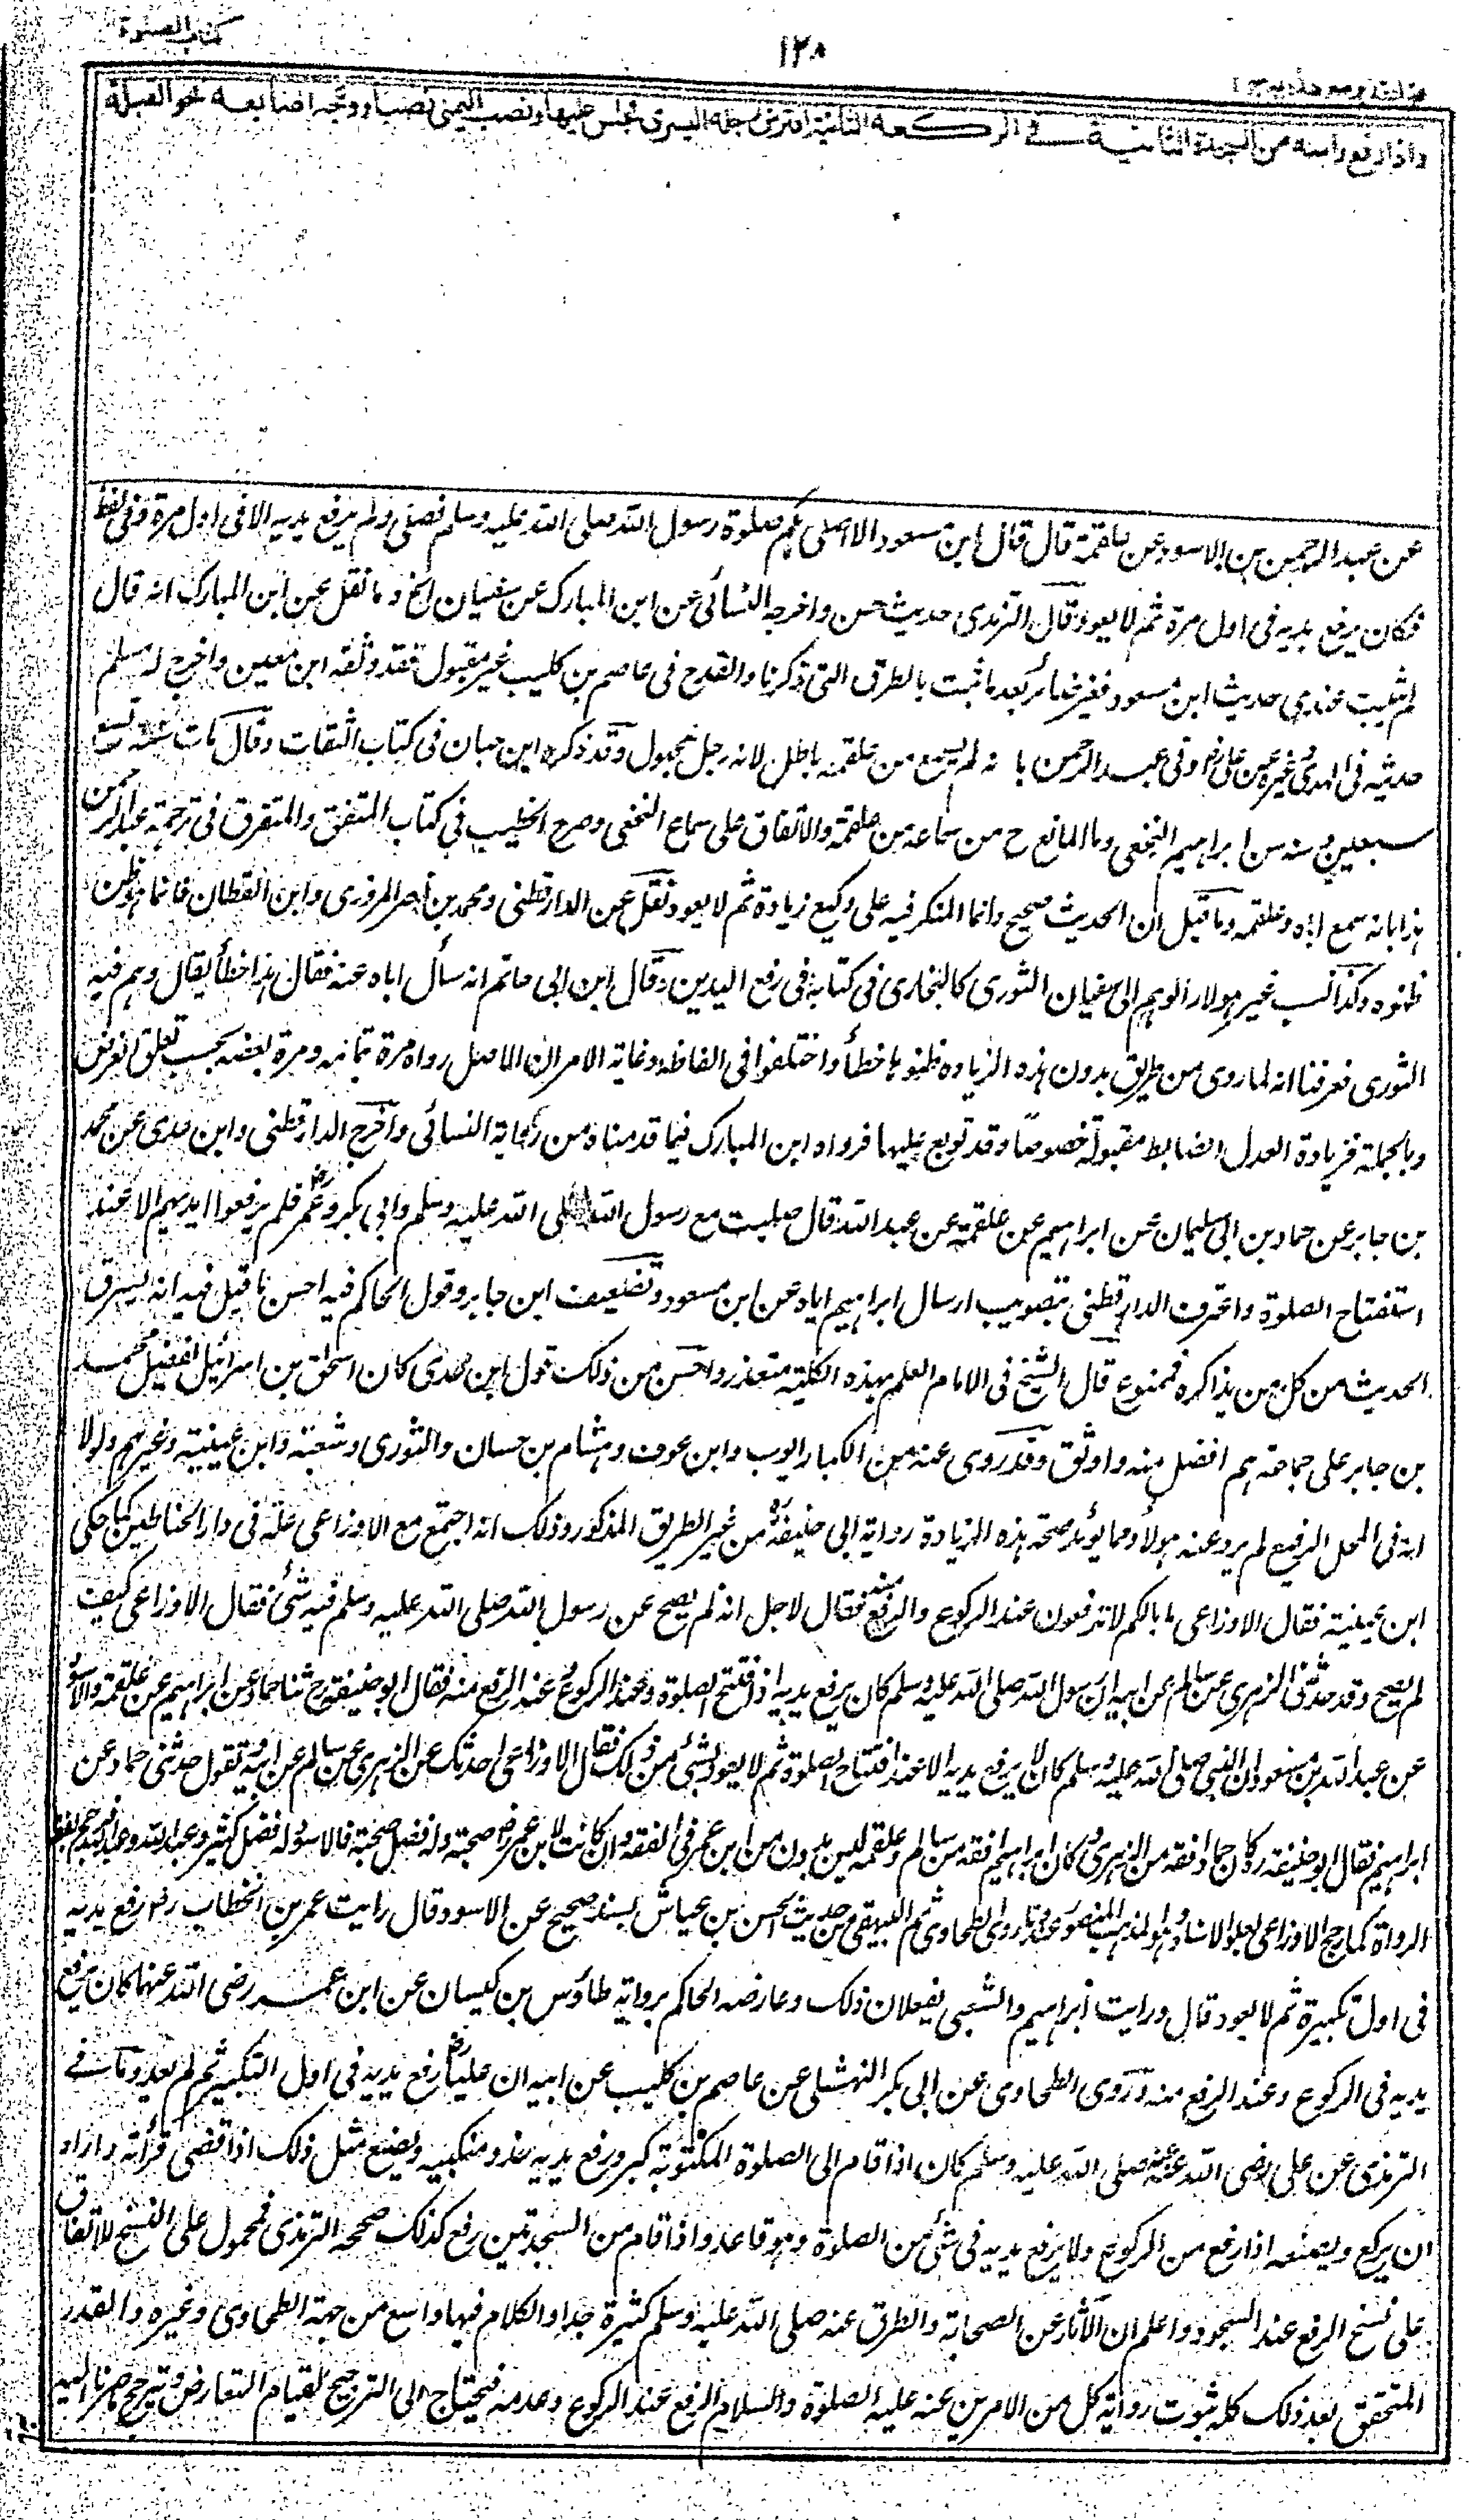 كتاب الصلوة
١٢٨
واذا رفع راسه من السجدة الثانية في الركعة الثانية افترش رجله اليسرى فجلس عليها ونصب اليمنى نصبا ووجه اصابعه نحو القبلة
عن عبد الرحمن بن الاسود عن علقمة قال قال ابن مسعود الا اصلى بكم صلوة رسول الله صلى الله عليه وسلم فصلى ولم يرفع يديه الا فى اول مرة وفى لفظ
فكان يرفع يديه فى اول مرة ثم لا يعود وقال الترمذى حديث حسن واخرجه النسائى عن ابن المبارك عن سفيان الخ وما نقل عن ابن المبارك انه قال
لم يثبت عندى حديث ابن مسعود فغير ضائر بعد ما ثبت بالطرق التى ذكرنا والقدح فى عاصم بن كليب غير مقبول فقد وثقه ابن معين واخرج له مسلم
حديثه فى الهدى وغيره عن على رض وفى عبد الرحمن بانه لم يسمع من علقمة باطل لانه رجل مجهول وقد ذكره ابن حبان فى كتاب الثقات وقال مات سنة تسع
وتسعين وسنه سن ابراهيم النخعى وما المانع ح من سماعه من علقمة والاتفاق على سماع النخعى وصرح الخطيب فى كتاب المتفق والمتفرق فى ترجمة عبد الرحمن
هذا بانه سمع اباه وعلقمه وما قيل ان الحديث صحيح وانما المنكر فيه على وكيع زيادة ثم لا يعود نقل عن الدارقطنى ومحمد بن نصر المروزى وابن القطان فانما هو ظن
ظنوه وكذا نسب غير هؤلاء الوهم الى سفيان الثورى كالبخارى فى كتابه فى رفع اليدين وقال ابن ابى حاتم انه سأل اباه عنه فقال هذا خطأ يقال وهم فيه
الثورى فعرفنا انه لما روى من طريق بدون هذه الزيادة ظنوها خطأ واختلفوا فى الفاظه وغاية الامر ان الاصل رواه مرة بتمامه ومرة بعضه بحسب تعلق الغرض
وبالجملة فزيادة العدل الضابط مقبولة خصوصا وقد توبع عليها فرواه ابن المبارك فيما قدمناه من رواية النسائى واخرج الدارقطنى وابن عدى عن محمد
بن جابر عن حماد بن ابى سليمان عن ابراهيم عن علقمة عن عبد الله قال صليت مع رسول الله صلى الله عليه وسلم وابى بكر وعمر رض فلم يرفعوا ايديهم الا عند
استفتاح الصلوة واعترف الدارقطنى بتصويب ارسال ابراهيم اياه عن ابن مسعود وتضعيف ابن جابر وقول الحاكم فيه احسن ما قيل فيه انه يسرق
الحديث من كل من يذاكره فممنوع قال الشيخ فى الامام العلم بهذه الكلية متعذر واحسن من ذلك قول ابن عدى كان اسحق بن اسرائيل يفضل محمد
بن جابر على جماعة هم افضل منه واوثق وقد روى عنه من الكبار ايوب وابن عوف وهشام بن حسان والثورى وشعبة وابن عيينة وغيرهم ولولا
انه فى المحل الرفيع لم يرو عنه هؤلاء ومما يؤيد صحة هذه الزيادة رواية ابى حنيفة من غير الطريق المذكور وذلك انه اجتمع مع الاوزاعى بمكة فى دار الحناطين كما حكى
ابن عيينة فقال الاوزاعى ما بالكم لا ترفعون عند الركوع والرفع منه فقال لاجل انه لم يصح عن رسول الله صلى الله عليه وسلم فيه شئ فقال الاوزاعى كيف
لم يصح وقد حدثنى الزهرى عن سالم عن ابيه ان رسول الله صلى الله عليه وسلم كان يرفع يديه اذا افتتح الصلوة وعند الركوع وعند الرفع منه فقال ابو حنيفة رح ثنا حماد عن ابراهيم عن علقمة والاسود
عن عبد الله بن مسعود ان النبى صلى الله عليه وسلم كان لا يرفع يديه الا عند افتتاح الصلوة ثم لا يعود بشئ من ذلك فقال الاوزاعى احدثك عن الزهرى عن سالم عن ابيه وتقول حدثنى حماد عن
ابراهيم فقال ابو حنيفة ره كان حماد افقه من الزهرى وكان ابراهيم افقه من سالم وعلقمه ليس بدون من ابن عمر فى الفقه وان كانت لابن عمر رض صحبة وله فضل صحبة فالاسود له فضل كثير وعبد الله عبد الله فرجح بفقه
الرواة كما رجح الاوزاعى بعلو الاسناد وهو المذهب المنصور عندنا وروى الطحاوى ثم البيهقى من حديث الحسن بن عياش بسند صحيح عن الاسود قال رايت عمر بن الخطاب رض رفع يديه
فى اول تكبيرة ثم لا يعود قال ورايت ابراهيم والشعبى يفعلان ذلك وعارضه الحاكم برواية طاؤس بن كيسان عن ابن عمر رضى الله عنهما كان يرفع
يديه فى الركوع وعند الرفع منه وروى الطحاوى عن ابى بكر النهشلى عن عاصم بن كليب عن ابيه ان عليا رض رفع يديه فى اول التكبير ثم لم يعد وما فى
الترمذى عن على رضى الله عنه عنه صلى الله عليه وسلم كان اذا قام الى الصلوة المكتوبة كبر ورفع يديه حذو منكبيه ويصنع مثل ذلك اذا قضى قرأته واراد
ان يركع ويصنعه اذا رفع من الركوع ولا يرفع يديه فى شئ من الصلوة وهو قاعد واذا قام من السجدتين رفع كذلك صححه الترمذى فمحمول على النسخ للاتفاق
على نسخ الرفع عند السجود واعلم ان الآثار عن الصحابة والطرق عنه صلى الله عليه وسلم كثيرة جدا والكلام فيها واسع من جهة الطحاوى وغيره والقدر
المتحقق بعد ذلك كله ثبوت رواية كل من الامرين عنه عليه الصلوة والسلام الرفع عند الركوع وعدمه فيحتاج الى الترجيح لقيام التعارض ويترجح ما صرنا اليه